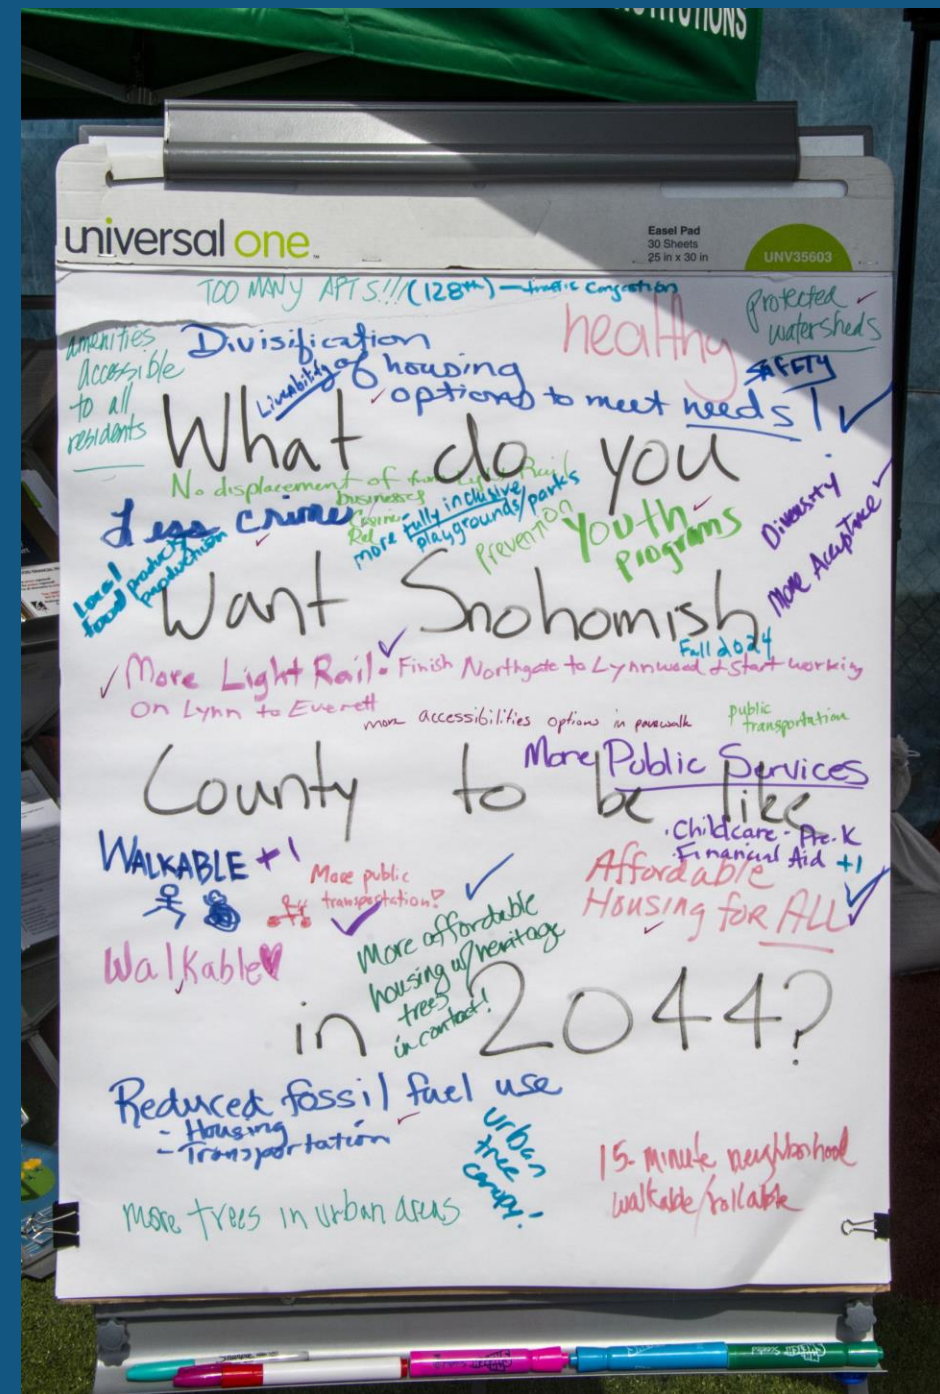 INSTITUTIONS
universal one
Easel Pad
30 Sheets
25 in x 30 in
UNV35603
TOO MANY APTS!!! (128th) — traffic congestion
protected
watersheds
healthy
amenities
accessible
to all
residents
Divisification
of housing
options to meet needs!
Livability
SAFETY
What do you
No displacement of
businesses
Light Rail
Less crimes
more fully inclusive
playgrounds/parks
Prevention
Youth
programs
Diversity
More Acceptance
Local
food products
production
Want Snohomish
Fall 2024
More Light Rail. Finish Northgate to Lynnwood & start working
on Lynn to Everett
more accessibilities options in
public
transportation
More Public Services
County to be like
· Childcare - Pre-K
· Financial Aid +1
WALKABLE +1
More public
transportation?
Affordable
Housing for ALL
Walkable
More affordable
housing w/heritage
trees
in contact!
in 2044?
Reduced fossil fuel use
- Housing
- Transportation
urban
tree
canopy!
15-minute neighborhood
walkable/rollable
more trees in urban areas